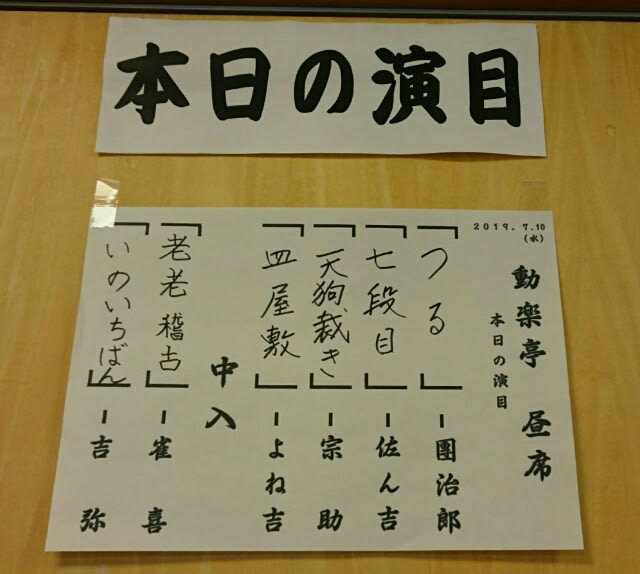 本日の演目
2019.7.10
(水)
動楽亭 昼席
本日の演目
「つる」 − 團治郎
「七段目」 − 佐ん吉
「天狗裁き」 − 宗助
「皿屋敷」 − よね吉
中入
「老老稽古」 − 雀喜
「いのいちばん」 − 吉弥